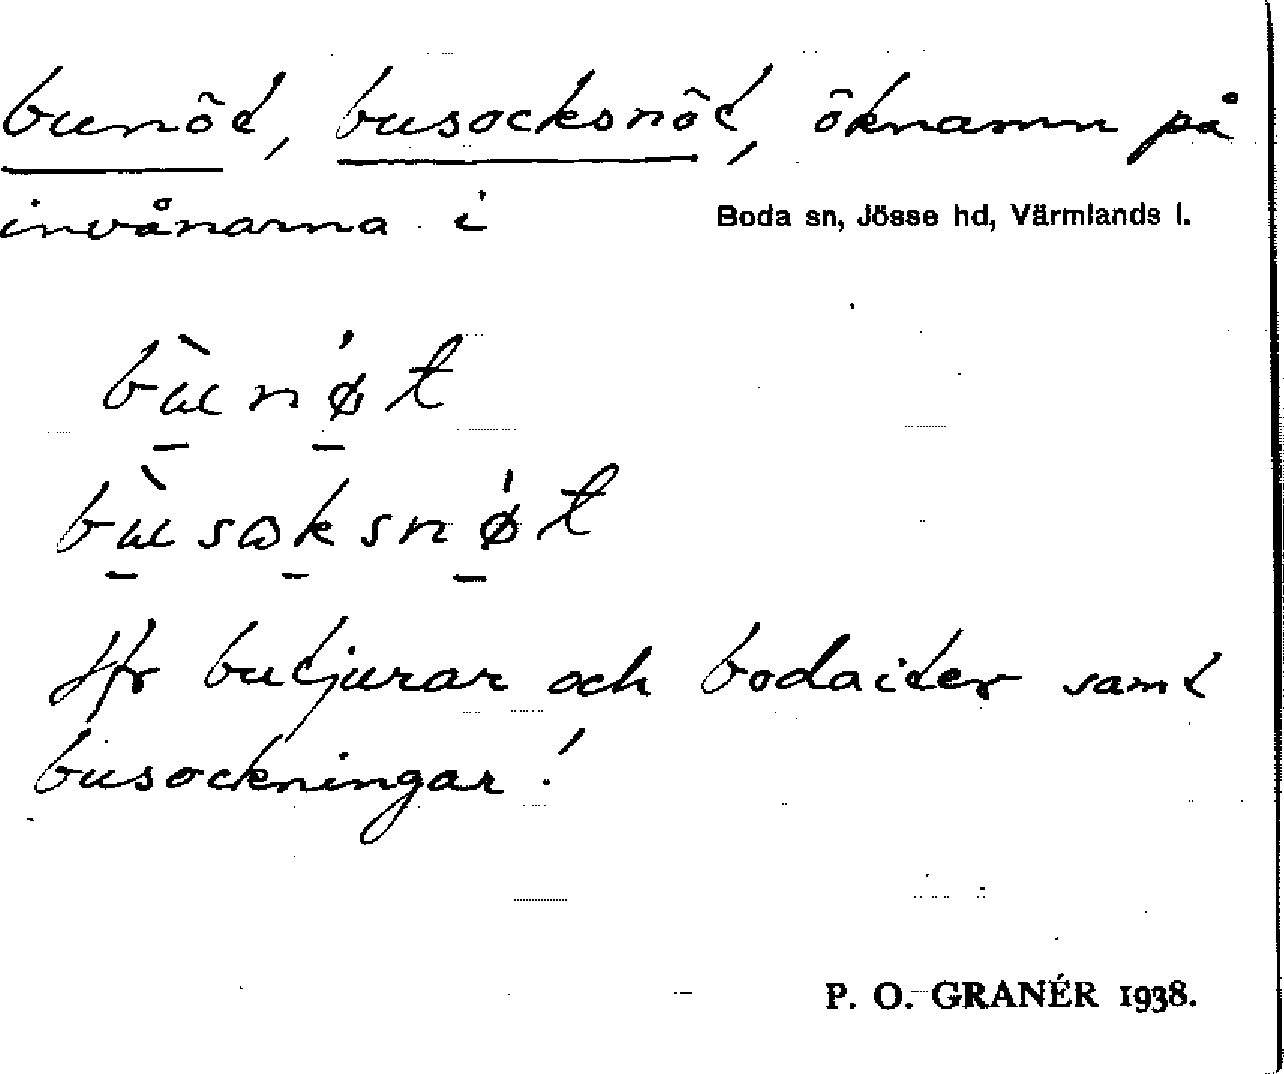 bunöt, busocksnöt, öknamn på
invånarna i Boda sn, Jösse hd, Värmlands l.
bùnø̍t
bùsωksnø̍t
Jfr butjurar och bodaiter samt
busockningar!
P. O. GRANÉR 1938.